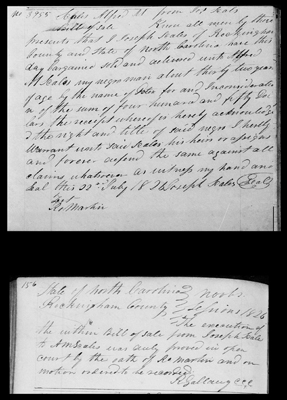 Scales Alfred M from Jos Scales
Bill of sale Know all men by these
presents that I Joseph Scales of Rockingham
County and State of North Carolina have this
day bargained sold and delivered unto Alfred
M Scales my negro man about thirty two years
of age by the name of for and in consideration
of the sum of four hundred and fifty Dol
lars the receipt whereof is hereby acknowledged
the right and title of said negro I hereby
warrant unto said Scales his heirs or assigns
and forever defend the same against all
claims whatsoever as witness my hand and
seal this 22nd July 18 Joseph Scales (Seal)
Test
Ro Martin
156
State of North Carolina
Rockingham County Sessions 1826
The execution of
the within Bill of sale from Joseph Scales
to A M Scales was duly proved in open
court by the oath of Ro Martin and on
motion ordered to be recorded
R Gallaway CCC